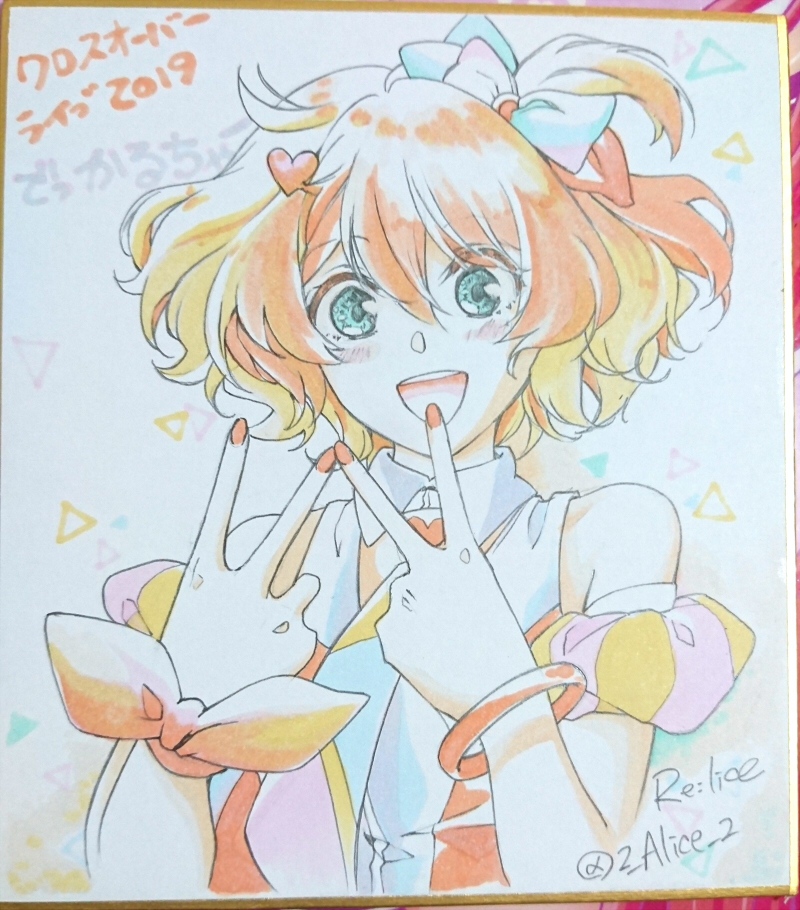 ワロスオーバー
ライブ2019
でっかるちゃー
Re:lice
@2_Alice_2